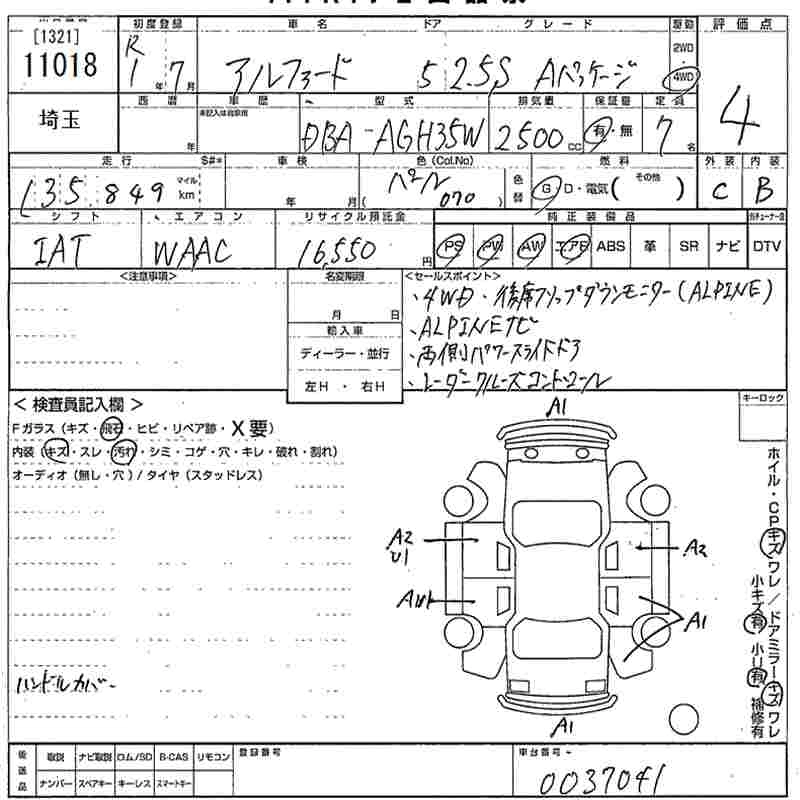 [1321]
11018
埼玉
初度登録
R
1年 7月
車名
アルファード
ドア
5
グレード
2.5S Aパッケージ
駆動
2WD
4WD
評価点
4
西暦
年
車歴
未記入は自家用
型式
DBA-AGH35W
排気量
2500cc
保証書
有・無
定員
7名
走行
S#*
135,849
マイル
km
車検
年 月
色(Col.No)
パール
(070)
色替
燃料
G D・電気( その他 )
外装
C
内装
B
シフト
IAT
エアコン
WAAC
リサイクル預託金
16,550円
純正装備品
PS PW AW エアB ABS 革 SR ナビ
DTV
<注意事項>
名変期限
月 日
輸入車
ディーラー・並行
左H ・ 右H
<セールスポイント>
・4WD ・後席フリップダウンモニター(ALPINE)
・ALPINEナビ
・両側パワースライドドア
・レーダークルーズコントロール
<検査員記入欄>
Fガラス(キズ・飛石・ヒビ・リペア跡・X要)
内装(キズ・スレ・汚れ・シミ・コゲ・穴・キレ・破れ・割れ)
オーディオ(無し・穴)/タイヤ(スタッドレス)
ハンドルカバー
A1
A2
U1
A2
A1
A1
キーロック
ホイル・CPキズワレ/ドアミラーキズワレ
小キズ有 小U有 補修有
後送品
取説 ナビ取説 ロム/SD B-CAS リモコン
ナンバー スペアキー キーレス スマートキー
登録番号
車台番号
0037041